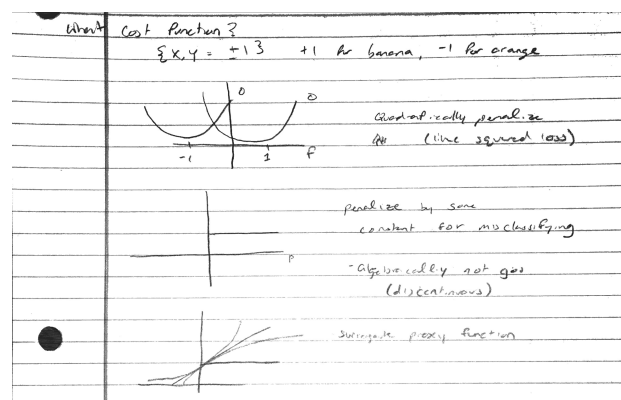 What Cost Function?
{x, y = ±1} +1 for banana, -1 for orange
0 0
Quadratically penalize
(like squared loss)
-1 1 f
penalize by same
constant for misclassifying
p
- algebraically not good
(discontinuous)
surrogate proxy function